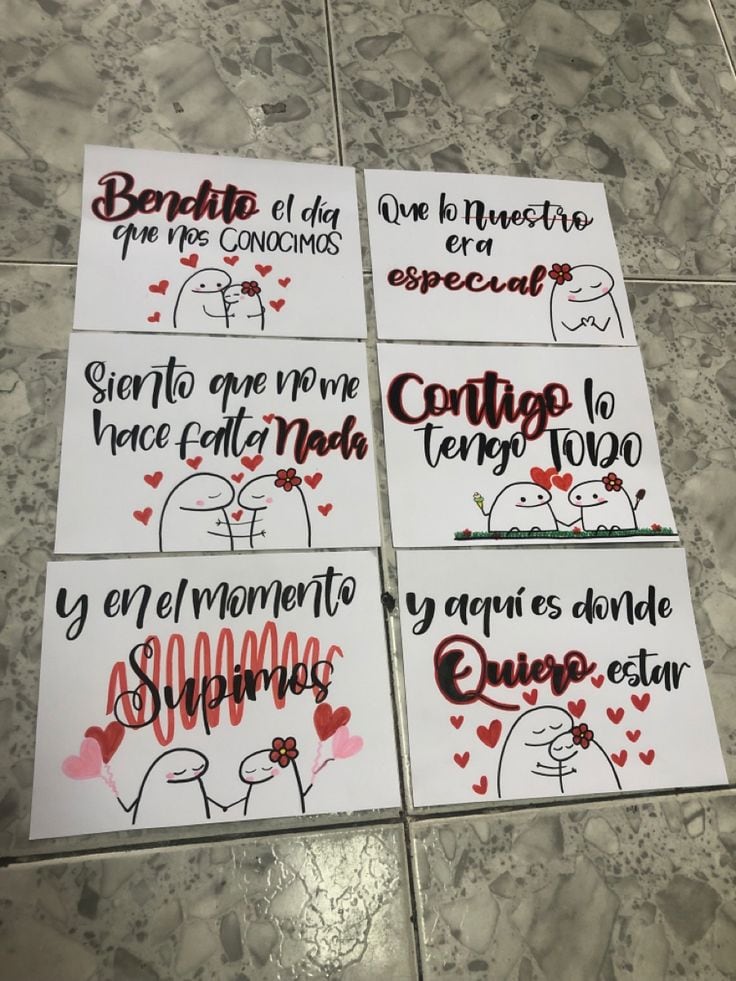 Bendito el día
que nos CONOCIMOS
Que lo Nuestro
era
especial
Siento que no me
hace falta Nada
Contigo lo
tengo TODO
y en el momento
Supimos
y aquí es donde
Quiero estar